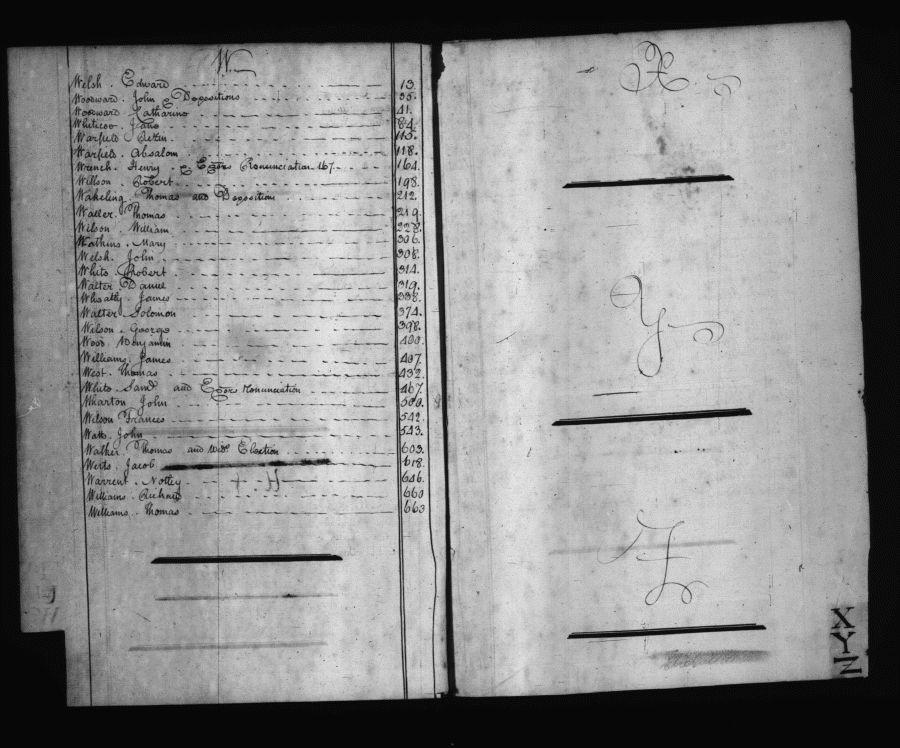 W
Welsh. Edward 13.
Woodward. John Depositions 35.
Woodward. Catharine 41.
84.
Warfield 115.
Warfield. Absalom 118.
Wrench. Henry. & Exors Renunciation 167. 164.
Willson. Robert 198.
Wakeling. Thomas and Deposition 212.
Waller. Thomas 219.
Wilson William 228.
Watkins. Mary 306.
Welsh. John 308.
White. Robert 314.
Walter 319.
Wheatly. James 338.
Walter. Solomon 374.
Wilson. George 398.
Wood. Benjamin 400.
Williams. James 407.
West. Thomas 432.
White. Saml and Exors renunciation 467.
Wharton John 500.
Wilson Frances 542.
Watts. John 543.
Walker. Thomas and Election 603.
Jacob 618.
646.
Williams. Richard 660
Williams. Thomas 663
X
Y
Z
X
Y
Z